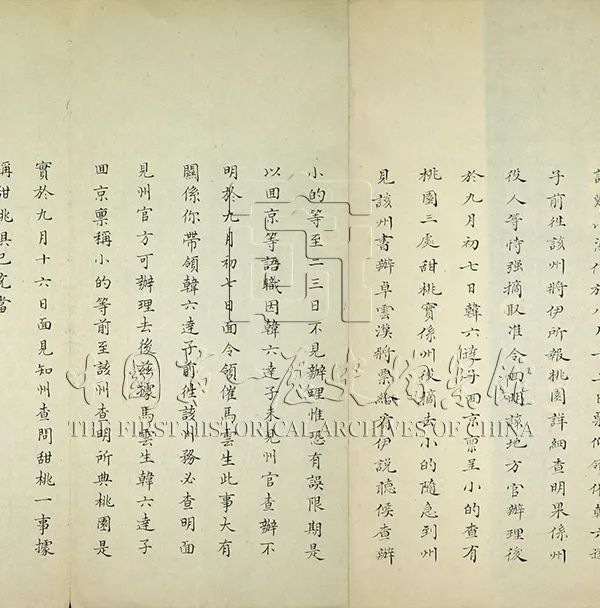 子前往該州將伊所報桃園詳細查明果係州
役人等恃强摘取准令回明該地方官辦理後
於九月初七日韓六達子回京禀呈小的查有
桃園三處甜桃實係州役摘去小的隨急到州
見該州書辦卓雲漢將票給看伊説聽候查辦
小的等至二三日不見辦理惟恐有誤限期是
以回京等語職因韓六達子未見州官查辦不
明於九月初七日面令領催馬雲生此事大有
關係你帶領韓六達子前往該州務必查明面
見州官方可辦理去後兹據馬雲生韓六達子
回京禀稱小的等前至該州查明所典桃園是
實於九月十六日面見知州查問甜桃一事據
稱甜桃俱已充當
中国第一历史档案馆
THE FIRST HISTORICAL ARCHIVES OF CHINA